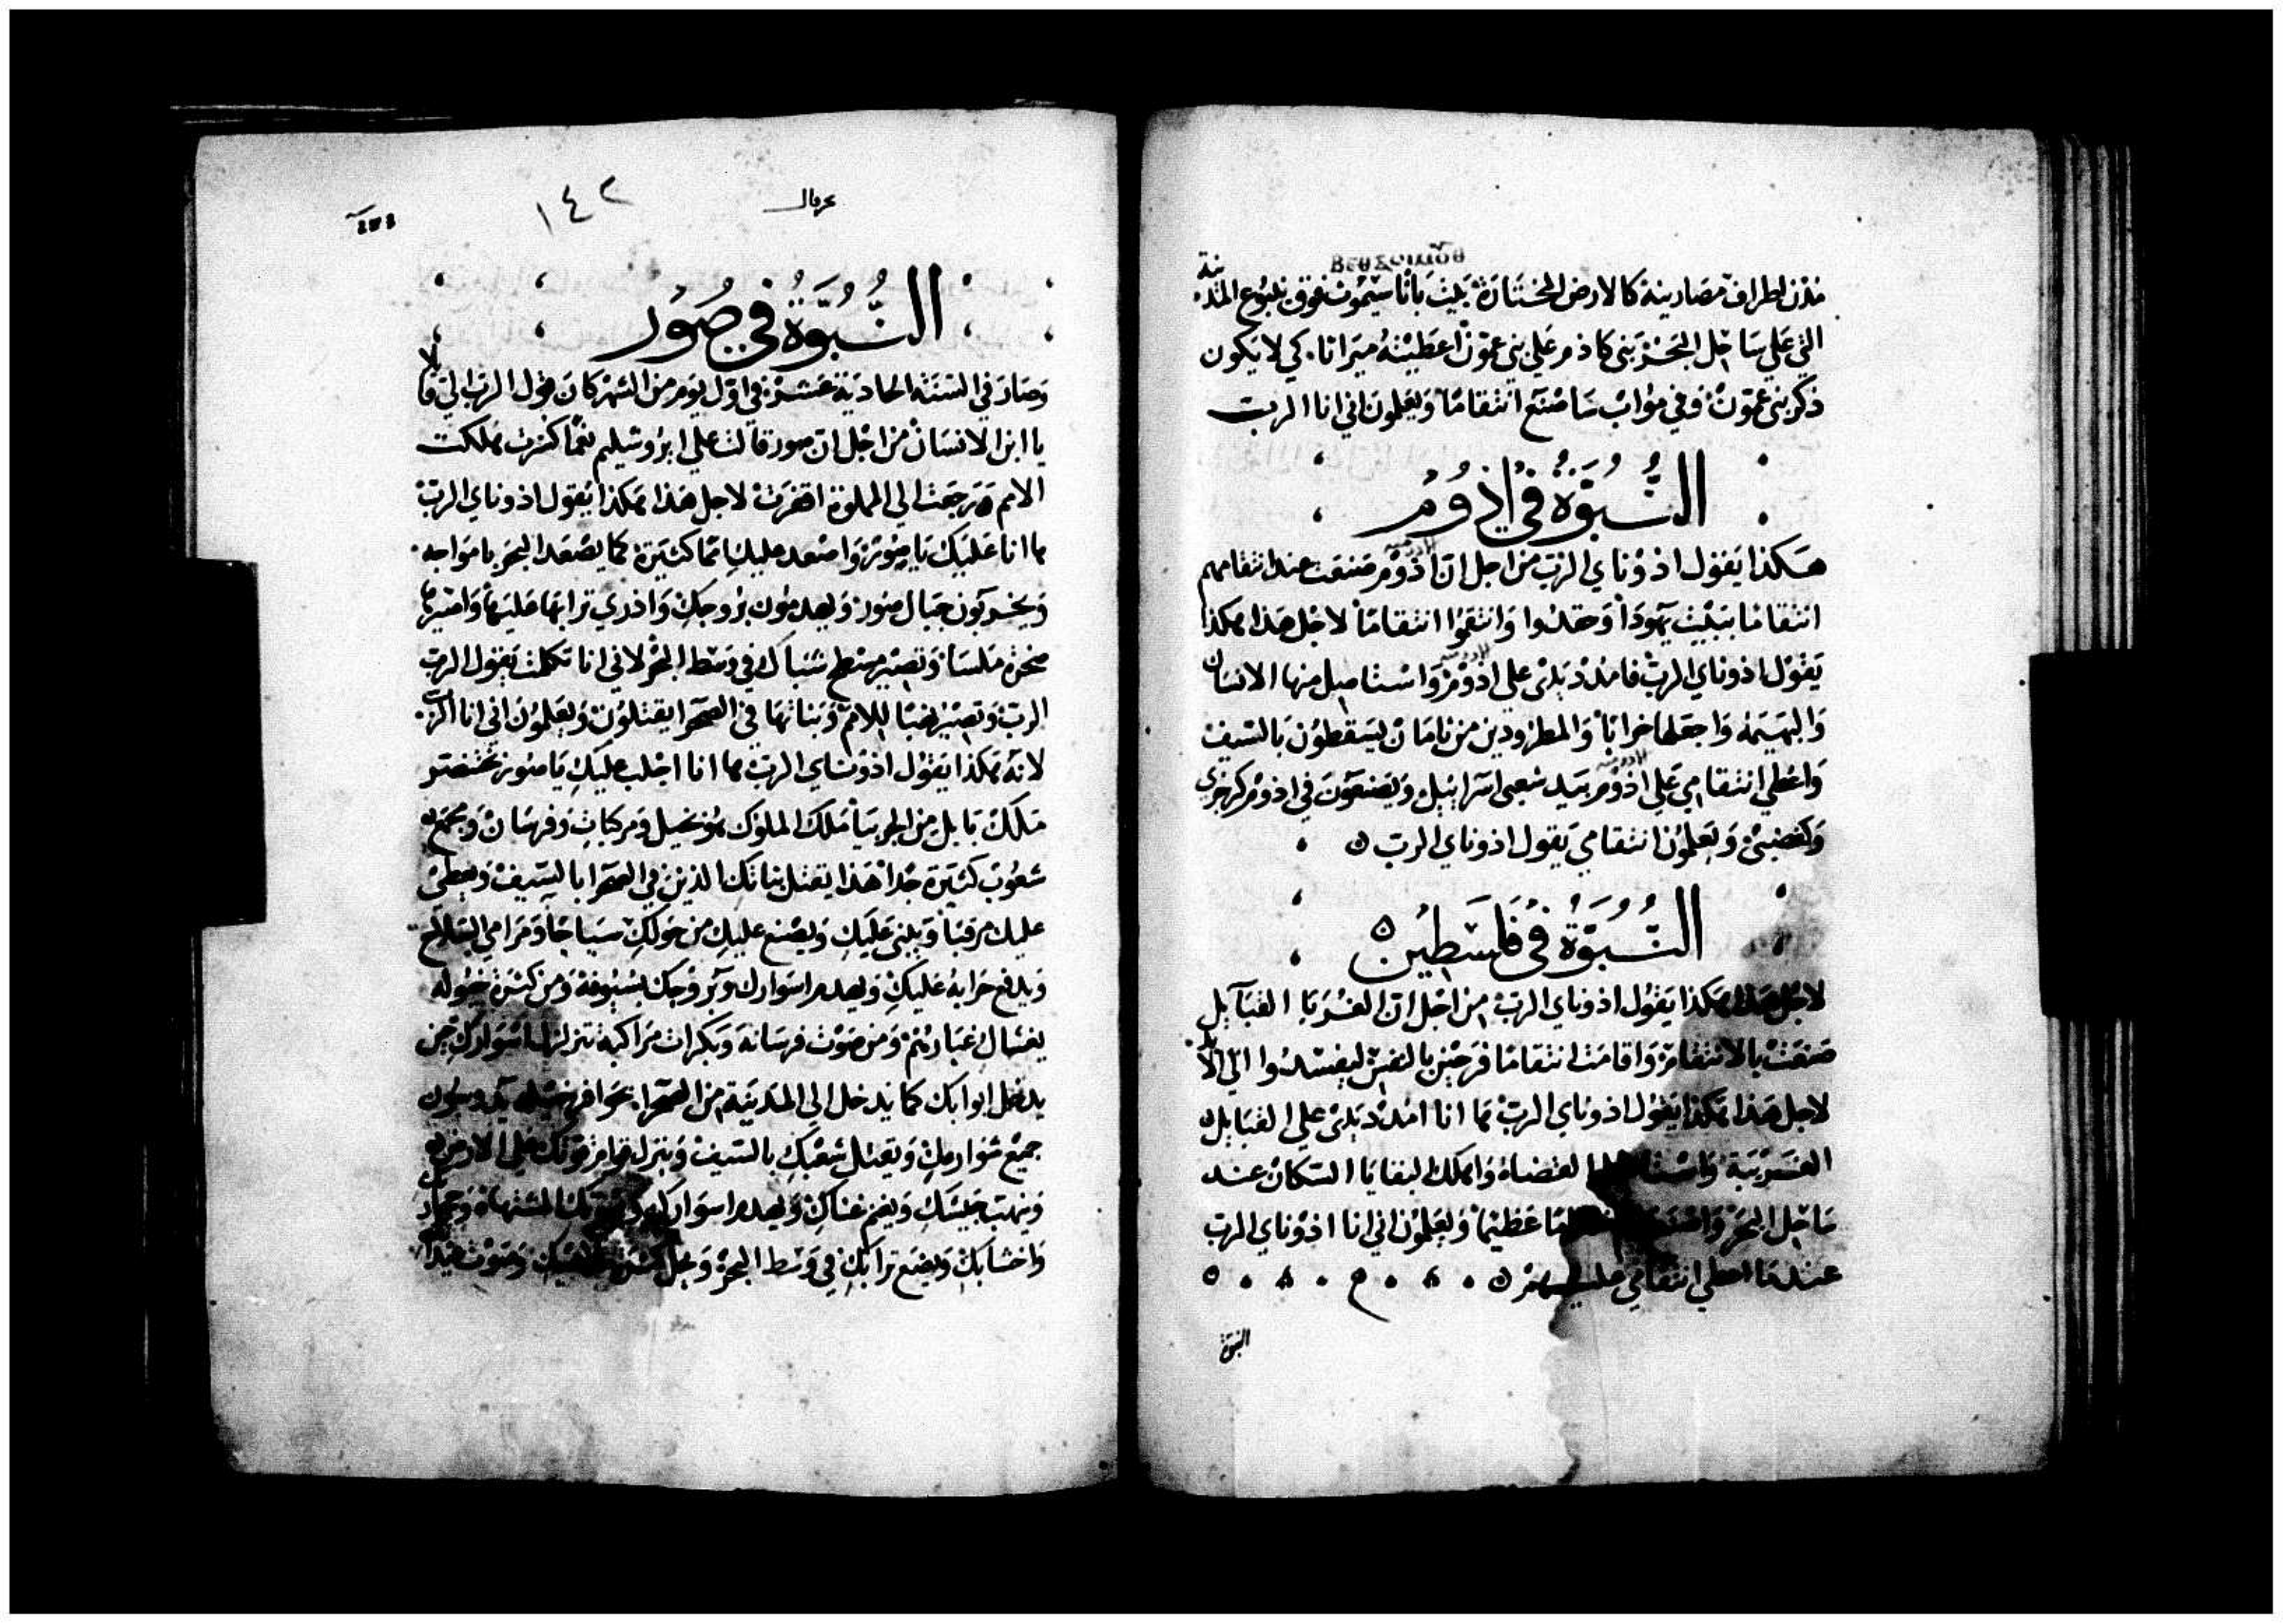 مدن اطراف مصادينة كالارض المختارة بيت باثا سيموث فوق ينبوع المدينة
التي علي ساحل البحر بني كاذم علي بني عمون اعطيته ميراثا. كي لا يكون
ذكر بني عمون وفي مواب ساصنع انتقاما ويعلمون اني انا الرب
النبوة في اذوم
هكذا يقول اذوناي الرب من اجل ان اذوم صنعت عند انتقامهم
انتقاما ببيت يهوذا وحقدوا وانتقموا انتقاما لاجل هذا هكذا
يقول اذوناي الرب فامد يدي علي اذوم واستاصل منها الانسان
والبهيمه واجعلها خرابا والمطرودين من ثامان يسقطون بالسيف
واعطي انتقامي علي اذوم بيد شعبي اسراييل ويصنعون في اذوم كرجزي
وكغضبي ويعلمون انتقامي يقول اذوناي الرب
النبوة في فلسطين
لاجل هذا هكذا يقول اذوناي الرب من اجل ان الغربا القبايل
صنعت بالانتقام واقامت انتقاما فرحين بالنفس ليفسدوا الي الابد
لاجل هذا هكذا يقول اذوناي الرب ها انا امد يدي علي القبايل
الغريبة القضاة واهلك البقايا السكان عند
ساحل البحر عظيما ويعلمون اني انا اذوناي الرب
عندما اعطي انتقامي عليهم
النبوة
١٤٢
النبوة في صور
وصار في السنة الحادية عشرة في اول يوم من الشهر كان قول الرب الي قايلا
يا ابن الانسان من اجل ان صور قالت علي ايروشليم نعما كسرت هلكت
الامم رجعت الي المملوة اقفرت لاجل هذا هكذا يقول اذوناي الرب
ها انا عليك يا صور واصعد عليك امما كثيرة كما يصعد البحر بامواجه
ويخربون جبال صور ويهدمون بروجك واذري ترابها عليها واصيرها
صخرة ملسا وتصير مسطح شباك في وسط البحر لاني انا تكلمت يقول الرب
الرب وتصير نهبا للامم وبناتها في الصحرا يقتلون ويعلمون اني انا الرب.
لانه هكذا يقول اذوناي الرب ها انا اجلب عليك يا صور بختنصر
ملك بابل من الجربيا ملك الملوك هو بخيل ومركبات وفرسان وبجمع
شعوب كثيرة جدا هذا يقتل بناتك الذين في الصحرا بالسيف ويعطي
عليك مرقبا ويبني عليك ويصنع عليك من حولك سياجا ومرامي السلاح
ويدفع حرابه عليك ويهدم اسوارك وبروجك بسيوفه ومن كثرة خيوله
يغشاك غبارهم ومن صوت فرسانه وبكرات مراكبه تتزلزل اسوارك حين
يدخل ابوابك كما يدخل الي المدينة من الصحرا. بحوافر خيله يدوسون
جميع شوارعك ويقتل شعبك بالسيف وينزل قوام قوتك علي الارض
وينهب جيشك ويغنم غناك ويهدم اسوارك المشتهاة وحجارتك
واخشابك ويضع ترابك في وسط البحر